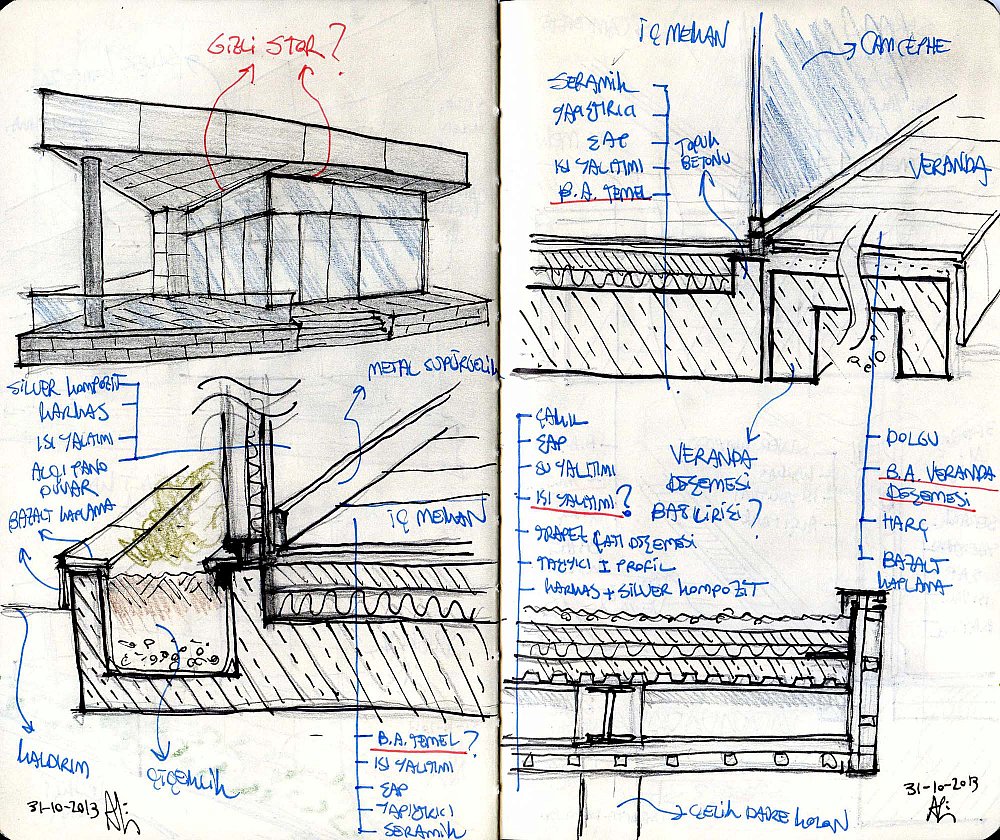 GİZLİ STOR?
SİLVER KOMPOZİT
KARKAS
ISI YALITIMI
ALÇI PANO
DUVAR
BAZALT KAPLAMA
METAL SÜPÜRGELİK
İÇ MEKAN
KALDIRIM
ÇİÇEKLİK
B.A. TEMEL?
ISI YALITIMI
ŞAP
YAPIŞTIRICI
SERAMİK
31-10-2013
İÇ MEKAN
CAM CEPHE
SERAMİK
YAPIŞTIRICI
ŞAP
ISI YALITIMI
B.A. TEMEL
TOPUK
BETONU
VERANDA
ÇAKIL
ŞAP
SU YALITIMI
ISI YALITIMI?
TRAPEZ ÇATI DÖŞEMESİ
TAŞIYICI I PROFİL
KARKAS + SİLVER KOMPOZİT
VERANDA
DÖŞEMESİ
BAĞ KİRİŞİ?
DOLGU
B.A. VERANDA
DÖŞEMESİ
HARÇ
BAZALT
KAPLAMA
ÇELİK DAİRE KOLON
31-10-2013